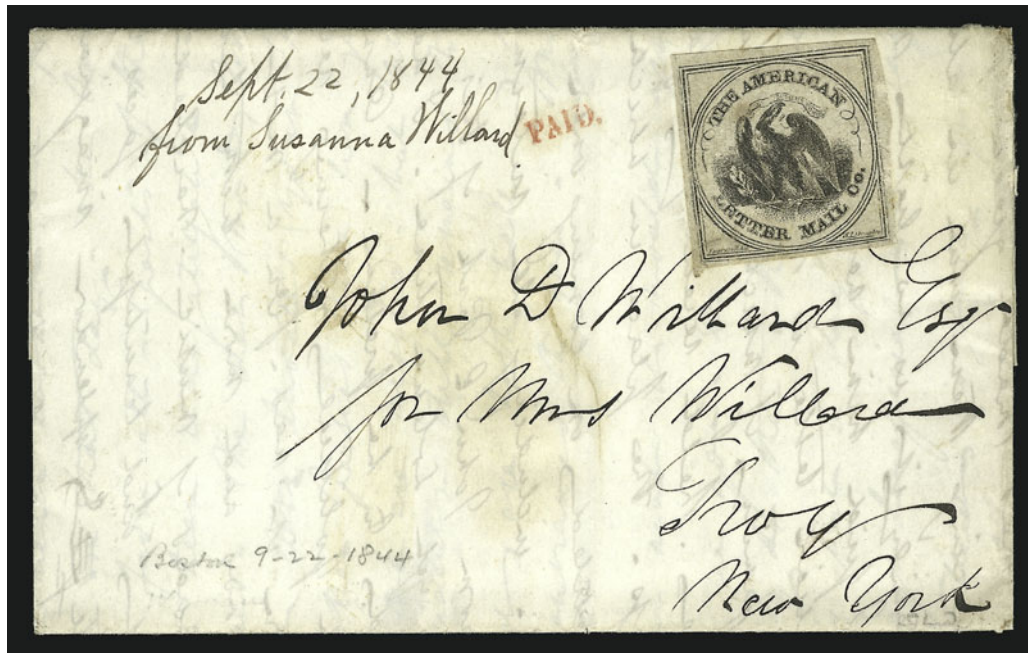 Sept. 22, 1844
from Susanna Willard.
PAID.
THE AMERICAN
LETTER MAIL Co.
John D Willard Esqr
for Mrs Willard
Troy
New York
Boston 9-22-1844